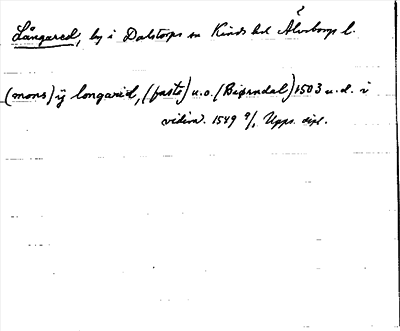 Långared, by i Dalstorps sn Kinds hd Älvsborgs l.
(mons) ÿ longarid, (fasto) u.o. (Biørndal) 1503 u.d. i
vidim. 1549 9/1 Upps. dipl.